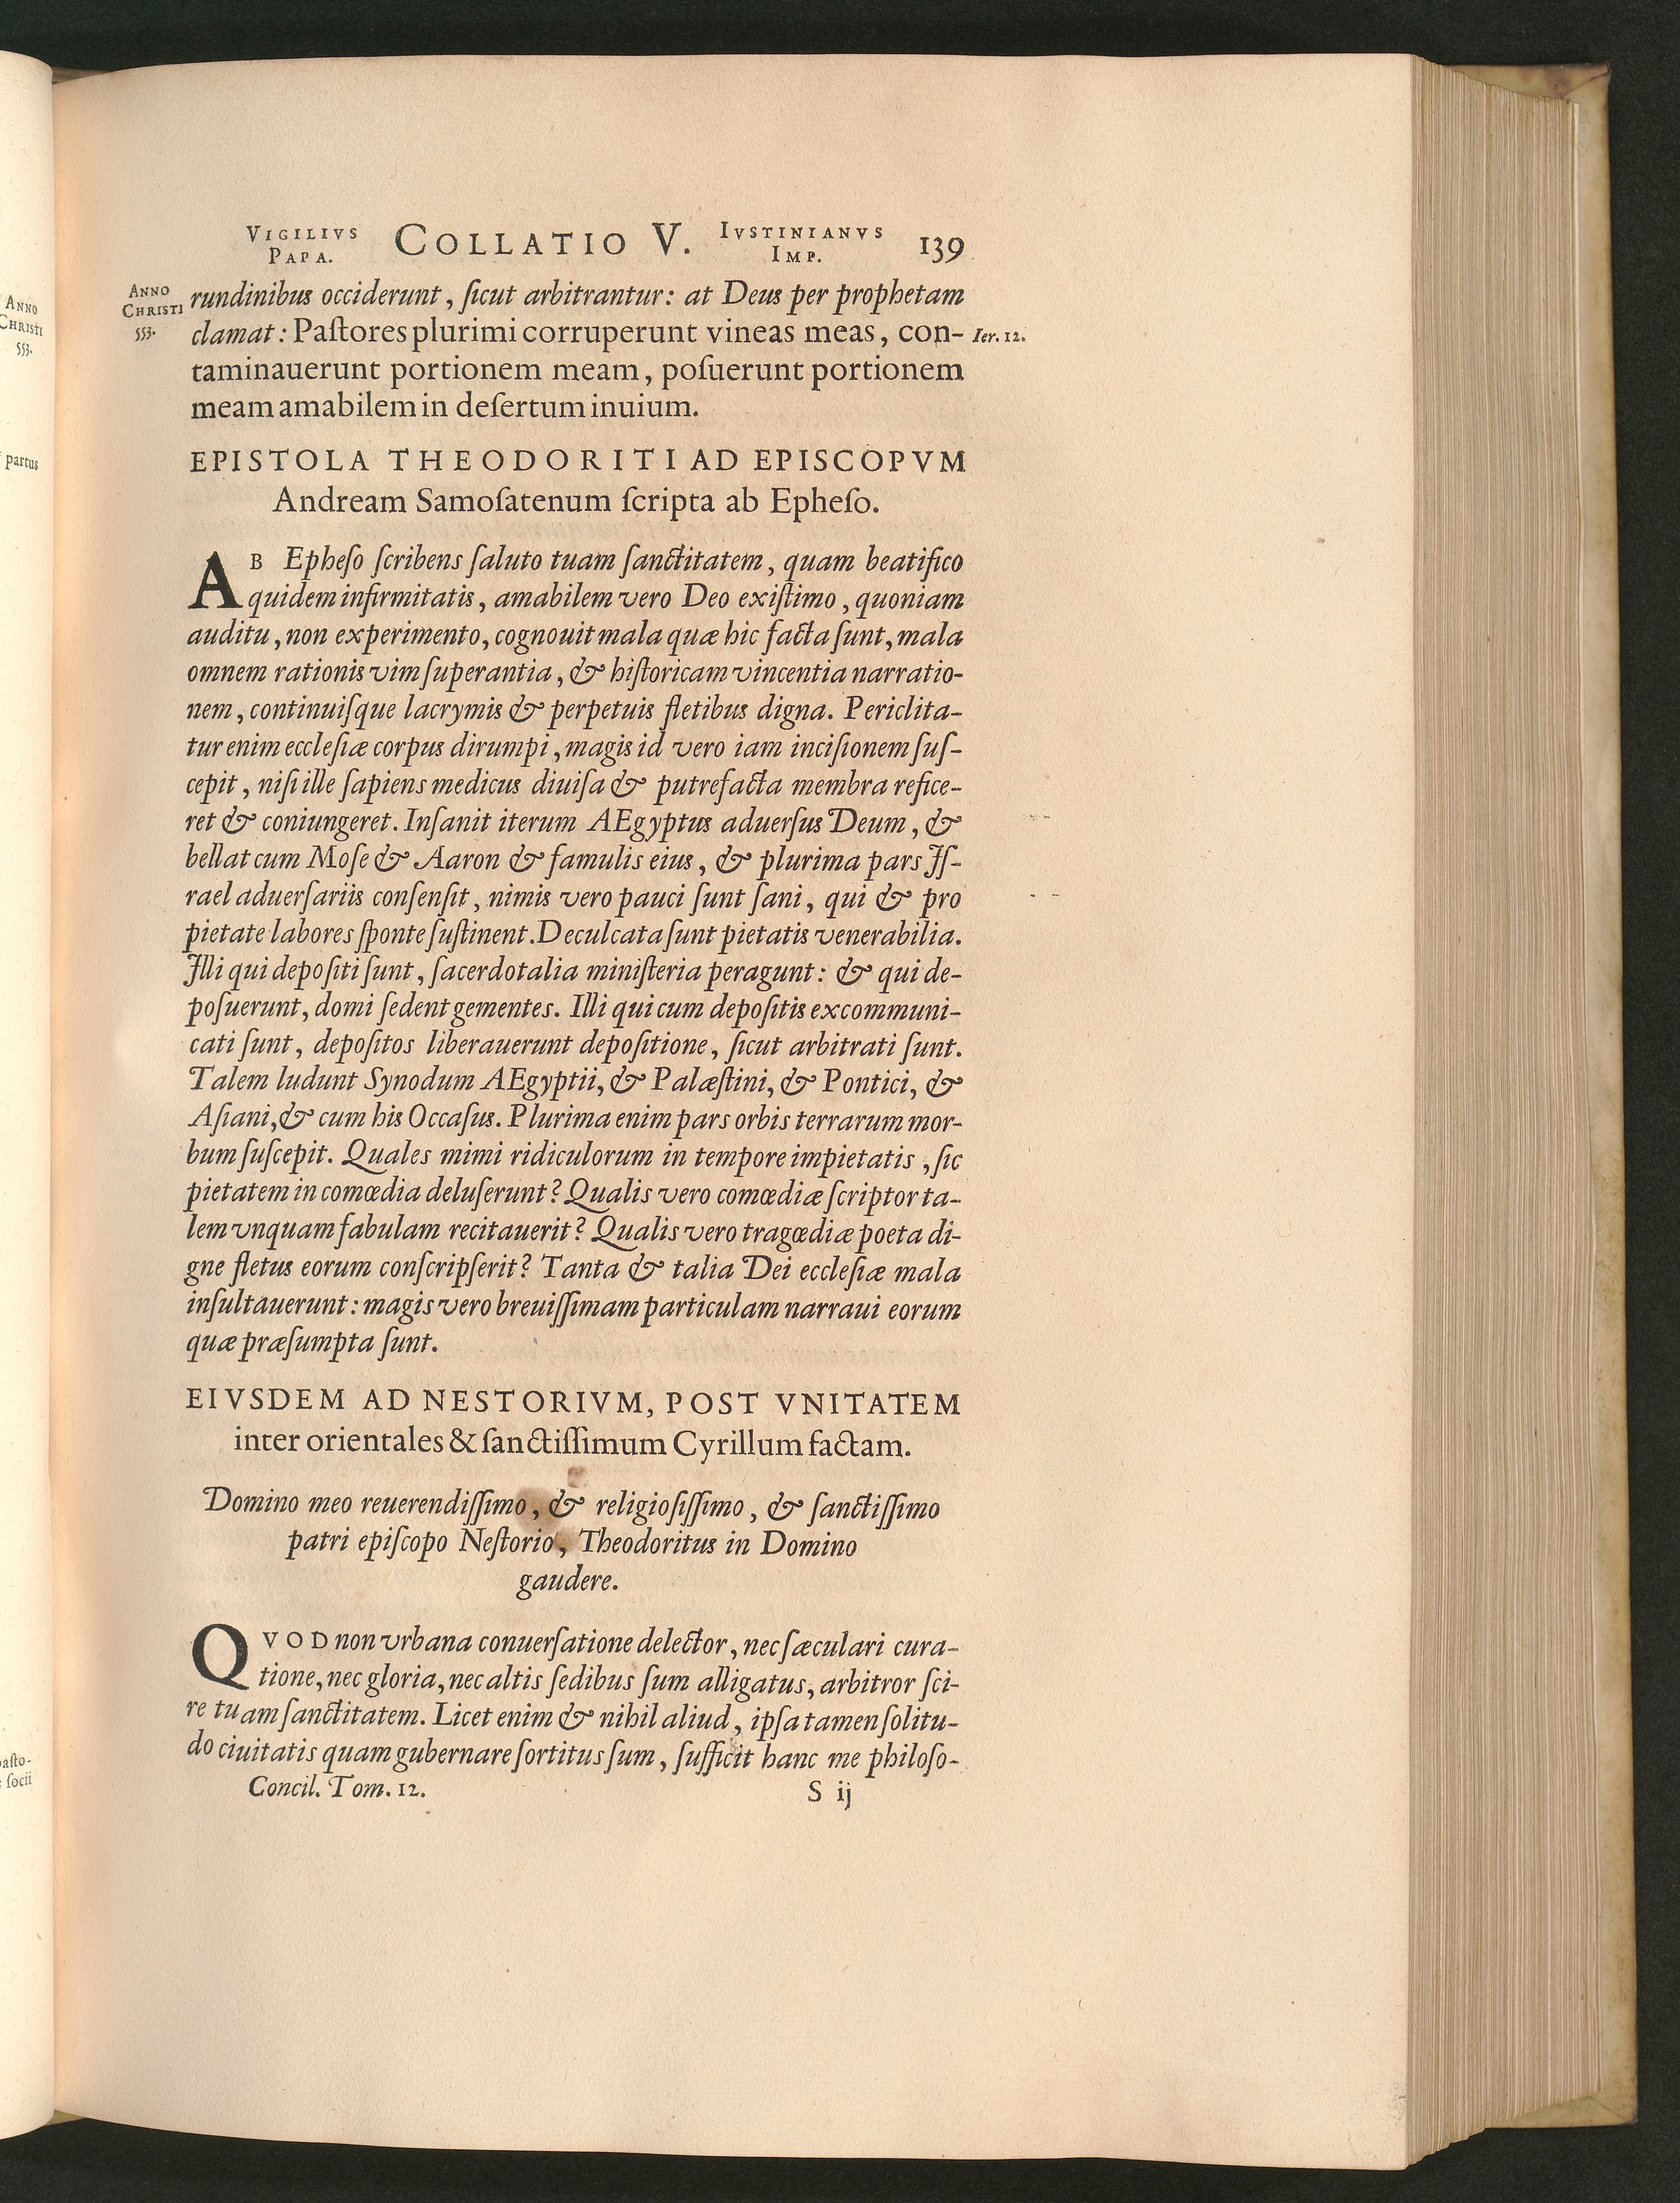 VIGILIVS PAPA. COLLATIO V. IVSTINIANVS IMP. 139
ANNO CHRISTI 553.
rundinibus occiderunt, ſicut arbitrantur: at Deus per prophetam
clamat: Paſtores plurimi corruperunt vineas meas, con-
Ier. 12.
taminauerunt portionem meam, poſuerunt portionem
meam amabilem in deſertum inuium.
EPISTOLA THEODORITI AD EPISCOPVM
Andream Samoſatenum ſcripta ab Epheſo.
AB Epheſo ſcribens ſaluto tuam ſanctitatem, quam beatifico
quidem infirmitatis, amabilem vero Deo exiſtimo, quoniam
auditu, non experimento, cognouit mala quæ hic facta ſunt, mala
omnem rationis vim ſuperantia, & hiſtoricam vincentia narratio-
nem, continuiſque lacrymis & perpetuis fletibus digna. Periclita-
tur enim eccleſiæ corpus dirumpi, magis id vero iam inciſionem ſuſ-
cepit, niſi ille ſapiens medicus diuiſa & putrefacta membra refice-
ret & coniungeret. Inſanit iterum AEgyptus aduerſus Deum, &
bellat cum Moſe & Aaron & famulis eius, & plurima pars Iſ-
rael aduerſariis conſenſit, nimis vero pauci ſunt ſani, qui & pro
pietate labores ſponte ſuſtinent. Deculcata ſunt pietatis venerabilia.
Illi qui depoſiti ſunt, ſacerdotalia miniſteria peragunt: & qui de-
poſuerunt, domi ſedent gementes. Illi qui cum depoſitis excommuni-
cati ſunt, depoſitos liberauerunt depoſitione, ſicut arbitrati ſunt.
Talem ludunt Synodum AEgyptii, & Palæſtini, & Pontici, &
Aſiani, & cum his Occaſus. Plurima enim pars orbis terrarum mor-
bum ſuſcepit. Quales mimi ridiculorum in tempore impietatis, ſic
pietatem in comœdia deluſerunt? Qualis vero comœdiæ ſcriptor ta-
lem vnquam fabulam recitauerit? Qualis vero tragœdiæ poeta di-
gne fletus eorum conſcripſerit? Tanta & talia Dei eccleſiæ mala
inſultauerunt: magis vero breuiſſimam particulam narraui eorum
quæ præſumpta ſunt.
EIVSDEM AD NESTORIVM, POST VNITATEM
inter orientales & ſanctiſſimum Cyrillum factam.
Domino meo reuerendiſſimo, & religioſiſſimo, & ſanctiſſimo
patri epiſcopo Neſtorio, Theodoritus in Domino
gaudere.
QVOD non vrbana conuerſatione delector, nec ſæculari cura-
tione, nec gloria, nec altis ſedibus ſum alligatus, arbitror ſci-
re tuam ſanctitatem. Licet enim & nihil aliud, ipſa tamen ſolitu-
do ciuitatis quam gubernare ſortitus ſum, ſufficit hanc me philoſo-
Concil. Tom. 12. S ij
ANNO
CHRISTI
553.
partus
paſto-
ſocii